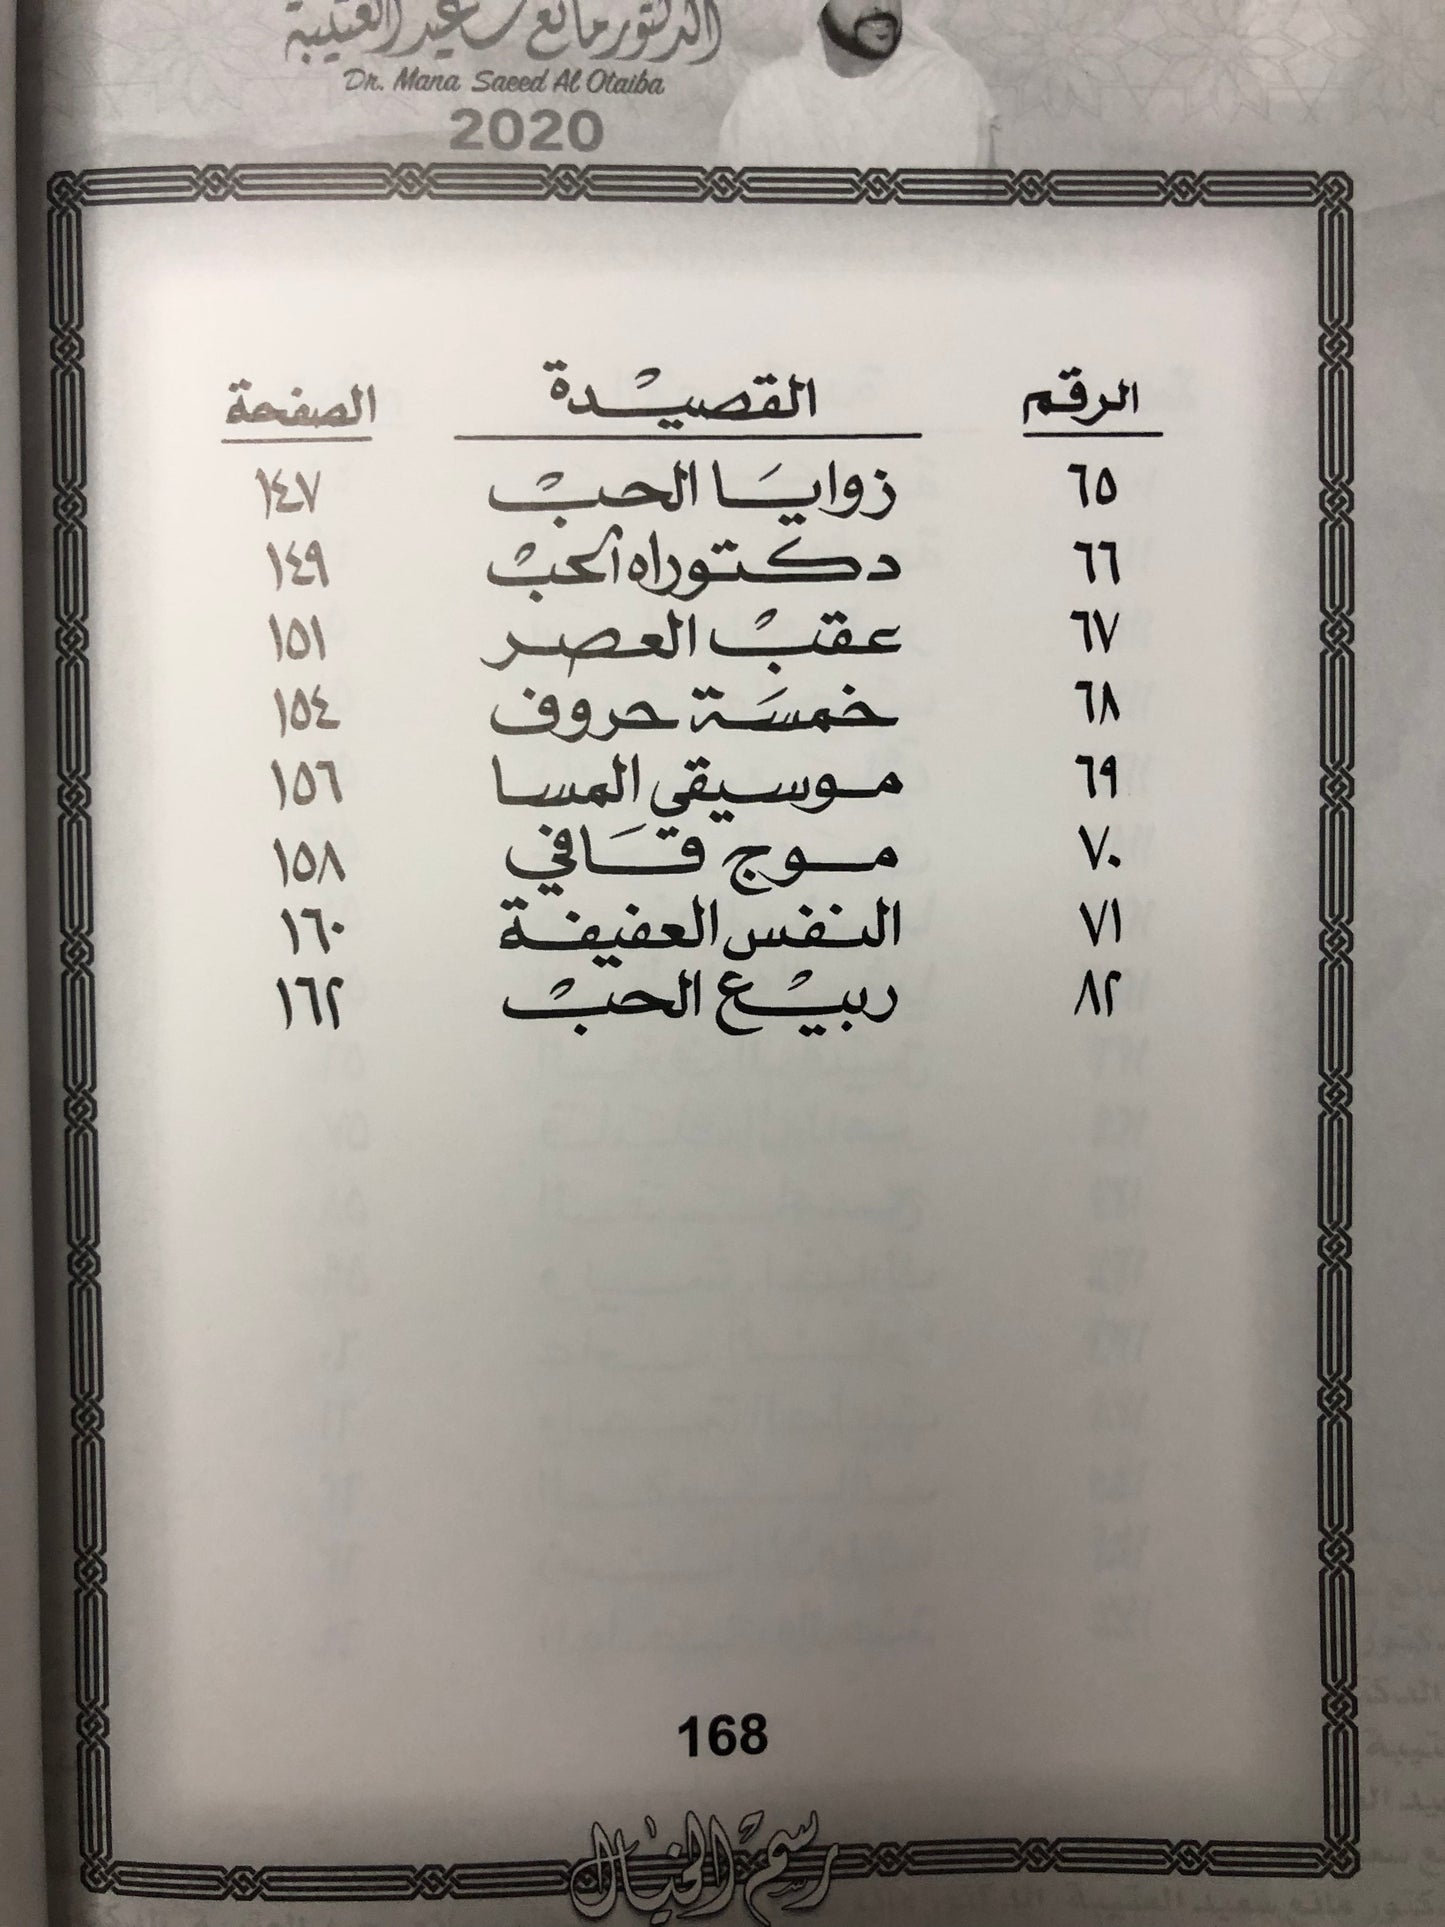 الدكتور مانع سعيد العتيبة
Dr. Mana Saeed Al Otaiba
2020
الرقم القصيدة الصفحة
٦٥ زوايا الحب ١٤٧
٦٦ دكتوراه الحب ١٤٩
٦٧ عقب العصر ١٥١
٦٨ خمسة حروف ١٥٤
٦٩ موسيقى المسا ١٥٦
٧٠ موج قافي ١٥٨
٧١ النفس العفيفة ١٦٠
٨٢ ربيع الحب ١٦٢
168
رسم الخيال